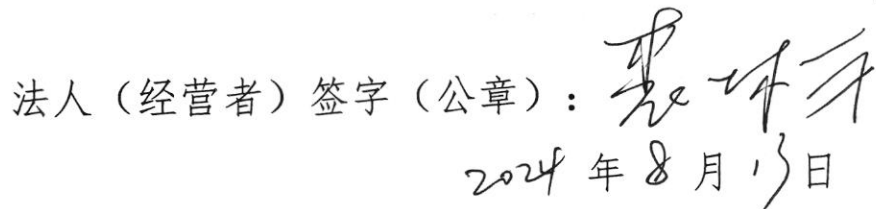 法人（经营者）签字（公章）：
2024年8月13日